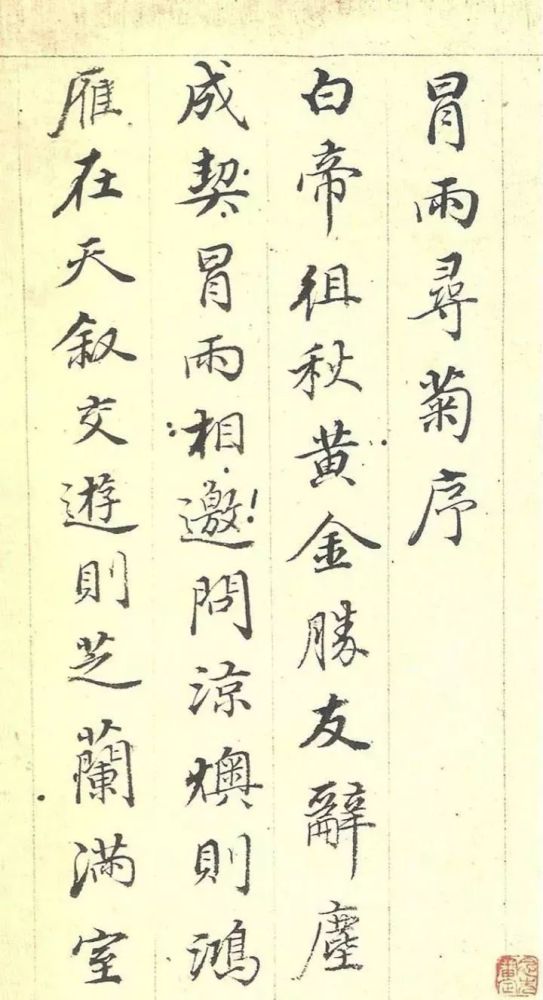 冒雨尋菊序
白帝徂秋黄金勝友辭塵
成契冒雨相邀問涼燠則鴻
雁在天叙交遊則芝蘭満室